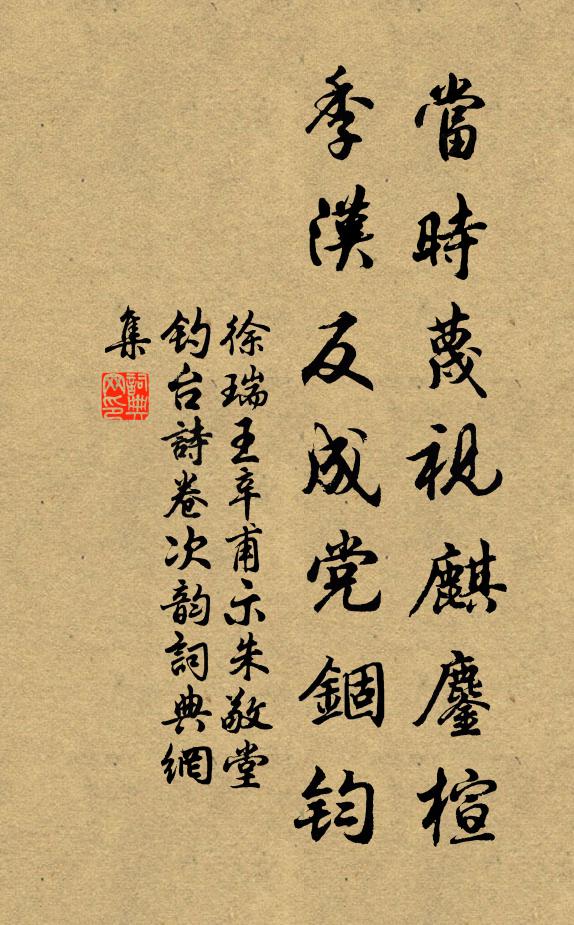 當時蔑視麒鏖楦
季漢反成党錮鈞
徐瑞王辛甫示朱敬堂
鈞台詩卷次韵詞典網
集
詞典網印